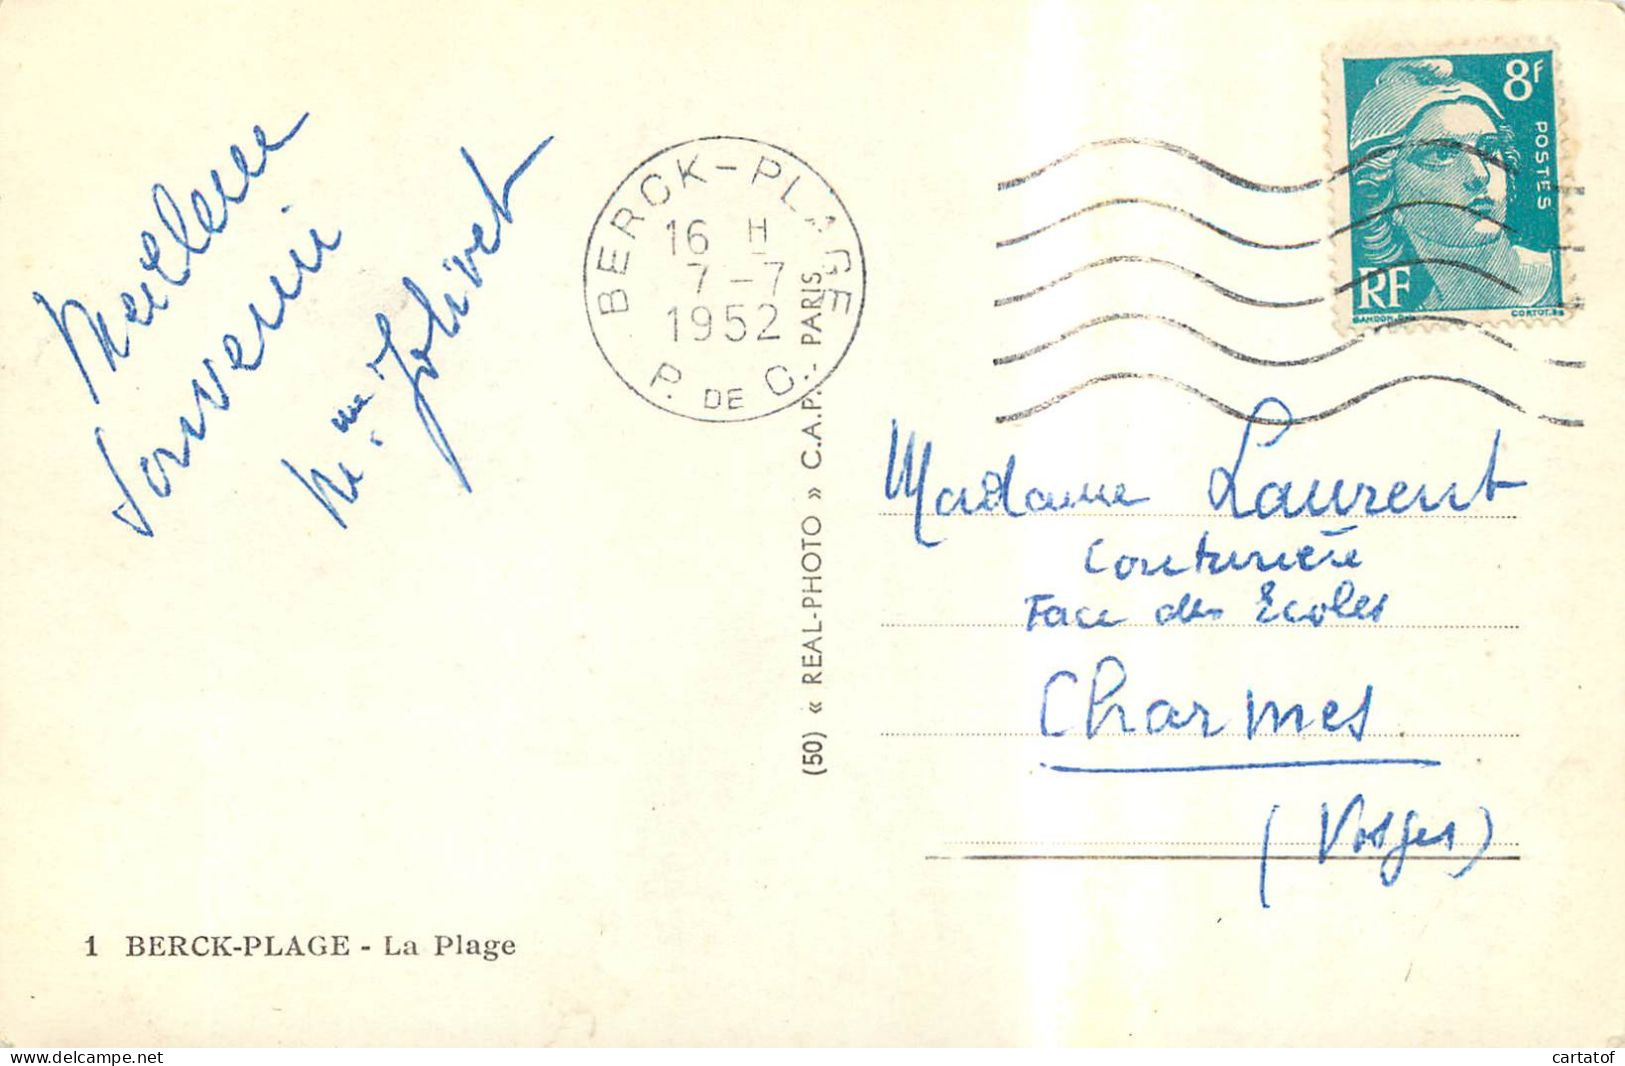 Meilleur
souvenir
Mme Jolivet
BERCK-PLAGE
16 H
7-7
1952
P. DE C.
8F
POSTES
RF
GANDON.DEL
CORTOT.SC
(50) « REAL-PHOTO » C.A.P. - PARIS
Madame Laurent
Couturière
Face des Ecoles
Charmes
(Vosges)
1 BERCK-PLAGE - La Plage
delcampe.net
cartatof